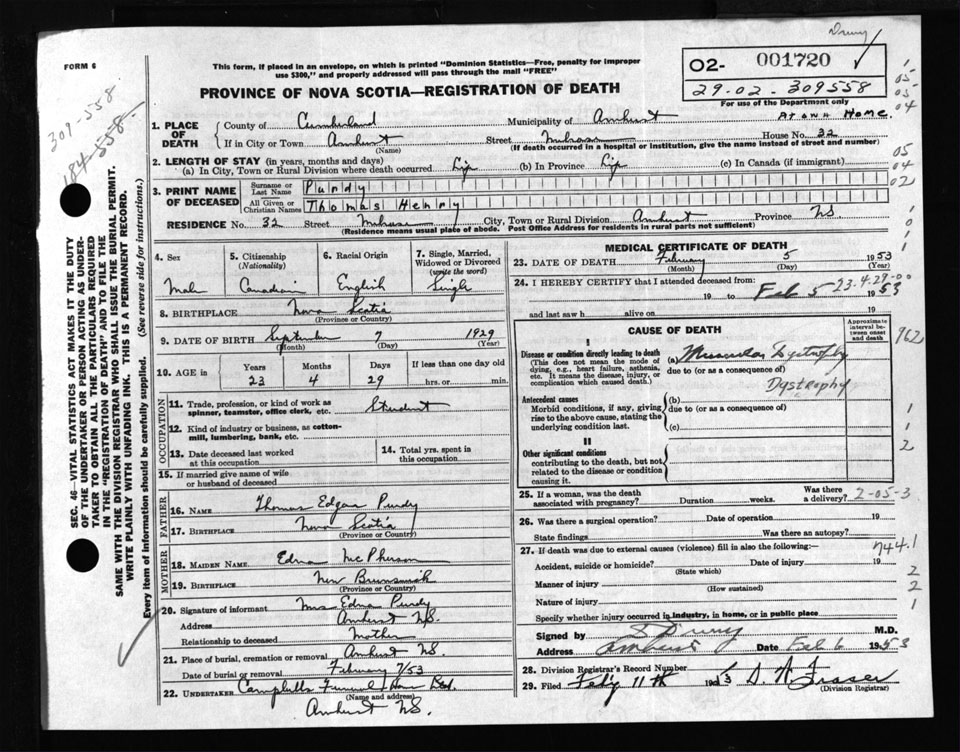 Drury
FORM 6
This form, if placed in an envelope, on which is printed "Dominion Statistics—Free, penalty for improper
use $300," and properly addressed will pass through the mail "FREE"
O2- 001720
29-02-309558
For use of the Department only
PROVINCE OF NOVA SCOTIA—REGISTRATION OF DEATH
309-558
184-558
1. PLACE OF DEATH
County of Cumberland Municipality of Amherst At own Home.
If in City or Town Amherst Street House No. 32
(Name) (If death occurred in a hospital or institution, give the name instead of street and number)
2. LENGTH OF STAY (in years, months and days)
(a) In City, Town or Rural Division where death occurred Life (b) In Province Life (c) In Canada (if immigrant)
3. PRINT NAME OF DECEASED
Surname or Last Name Purdy
All Given or Christian Names Thomas Henry
RESIDENCE No. 32 Street City, Town or Rural Division Amherst Province NS
(Residence means usual place of abode. Post Office Address for residents in rural parts not sufficient)
4. Sex Male
5. Citizenship (Nationality) Canadian
6. Racial Origin English
7. Single, Married, Widowed or Divorced (write the word) Single
8. BIRTHPLACE Nova Scotia
(Province or Country)
9. DATE OF BIRTH September 7 1929
(Month) (Day) (Year)
10. AGE in Years Months Days If less than one day old
23 4 29 hrs. or min.
OCCUPATION
11. Trade, profession, or kind of work as spinner, teamster, office clerk, etc. Student
12. Kind of industry or business, as cotton-mill, lumbering, bank, etc.
13. Date deceased last worked at this occupation
14. Total yrs. spent in this occupation
15. If married give name of wife or husband of deceased
FATHER
16. NAME Thomas Edgar Purdy
17. BIRTHPLACE Nova Scotia
(Province or Country)
MOTHER
18. MAIDEN NAME Edna McPherson
19. BIRTHPLACE New Brunswick
(Province or Country)
20. Signature of informant Mrs Edna Purdy
Address Amherst NS.
Relationship to deceased Mother
21. Place of burial, cremation or removal Amherst NS.
Date of burial or removal February 7/53
22. UNDERTAKER Campbells Funeral Home Ltd.
(Name and address)
Amherst NS.
MEDICAL CERTIFICATE OF DEATH
23. DATE OF DEATH February 5 1953
(Month) (Day) (Year)
24. I HEREBY CERTIFY that I attended deceased from: 23.4.29-00
19 to Feb 5 1953
and last saw h alive on 19
CAUSE OF DEATH
Approximate interval between onset and death
I
Disease or condition directly leading to death
(This does not mean the mode of dying, e.g., heart failure, asthenia, etc. It means the disease, injury, or complication which caused death.)
(a) Muscular Dystrophy
due to (or as a consequence of)
Dystrophy
Antecedent causes
Morbid conditions, if any, giving rise to the above cause, stating the underlying condition last.
(b)
due to (or as a consequence of)
(c)
II
Other significant conditions
contributing to the death, but not related to the disease or condition causing it.
25. If a woman, was the death associated with pregnancy? Duration weeks. Was there a delivery? 2-05-3
26. Was there a surgical operation? Date of operation 19
State findings Was there an autopsy?
27. If death was due to external causes (violence) fill in also the following: 744.1
Accident, suicide or homicide? Date of injury 19
(State which)
Manner of injury
(How sustained)
Nature of injury
Specify whether injury occurred in industry, in home, or in public place
Signed by Drury M.D.
Address Amherst Date Feb 6 1953
28. Division Registrar's Record Number
29. Filed Feb'y 11th 1953 Fraser
(Division Registrar)
1
05
05
04
05
04
02
1
0
0
1
962
1
1
2
2
2
1
SEC. 46—VITAL STATISTICS ACT MAKES IT THE DUTY
OF THE UNDERTAKER OR PERSON ACTING AS UNDER-
TAKER TO OBTAIN ALL THE PARTICULARS REQUIRED
IN THE "REGISTRATION OF DEATH" AND TO FILE THE
SAME WITH THE DIVISION REGISTRAR WHO SHALL ISSUE THE BURIAL PERMIT.
WRITE PLAINLY WITH UNFADING INK. THIS IS A PERMANENT RECORD.
Every item of information should be carefully supplied. (See reverse side for instructions.)